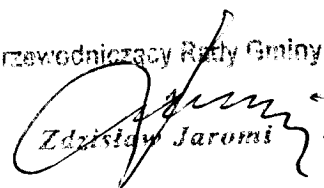 rzewodniczący Rady Gminy
Zdzisław Jaromi